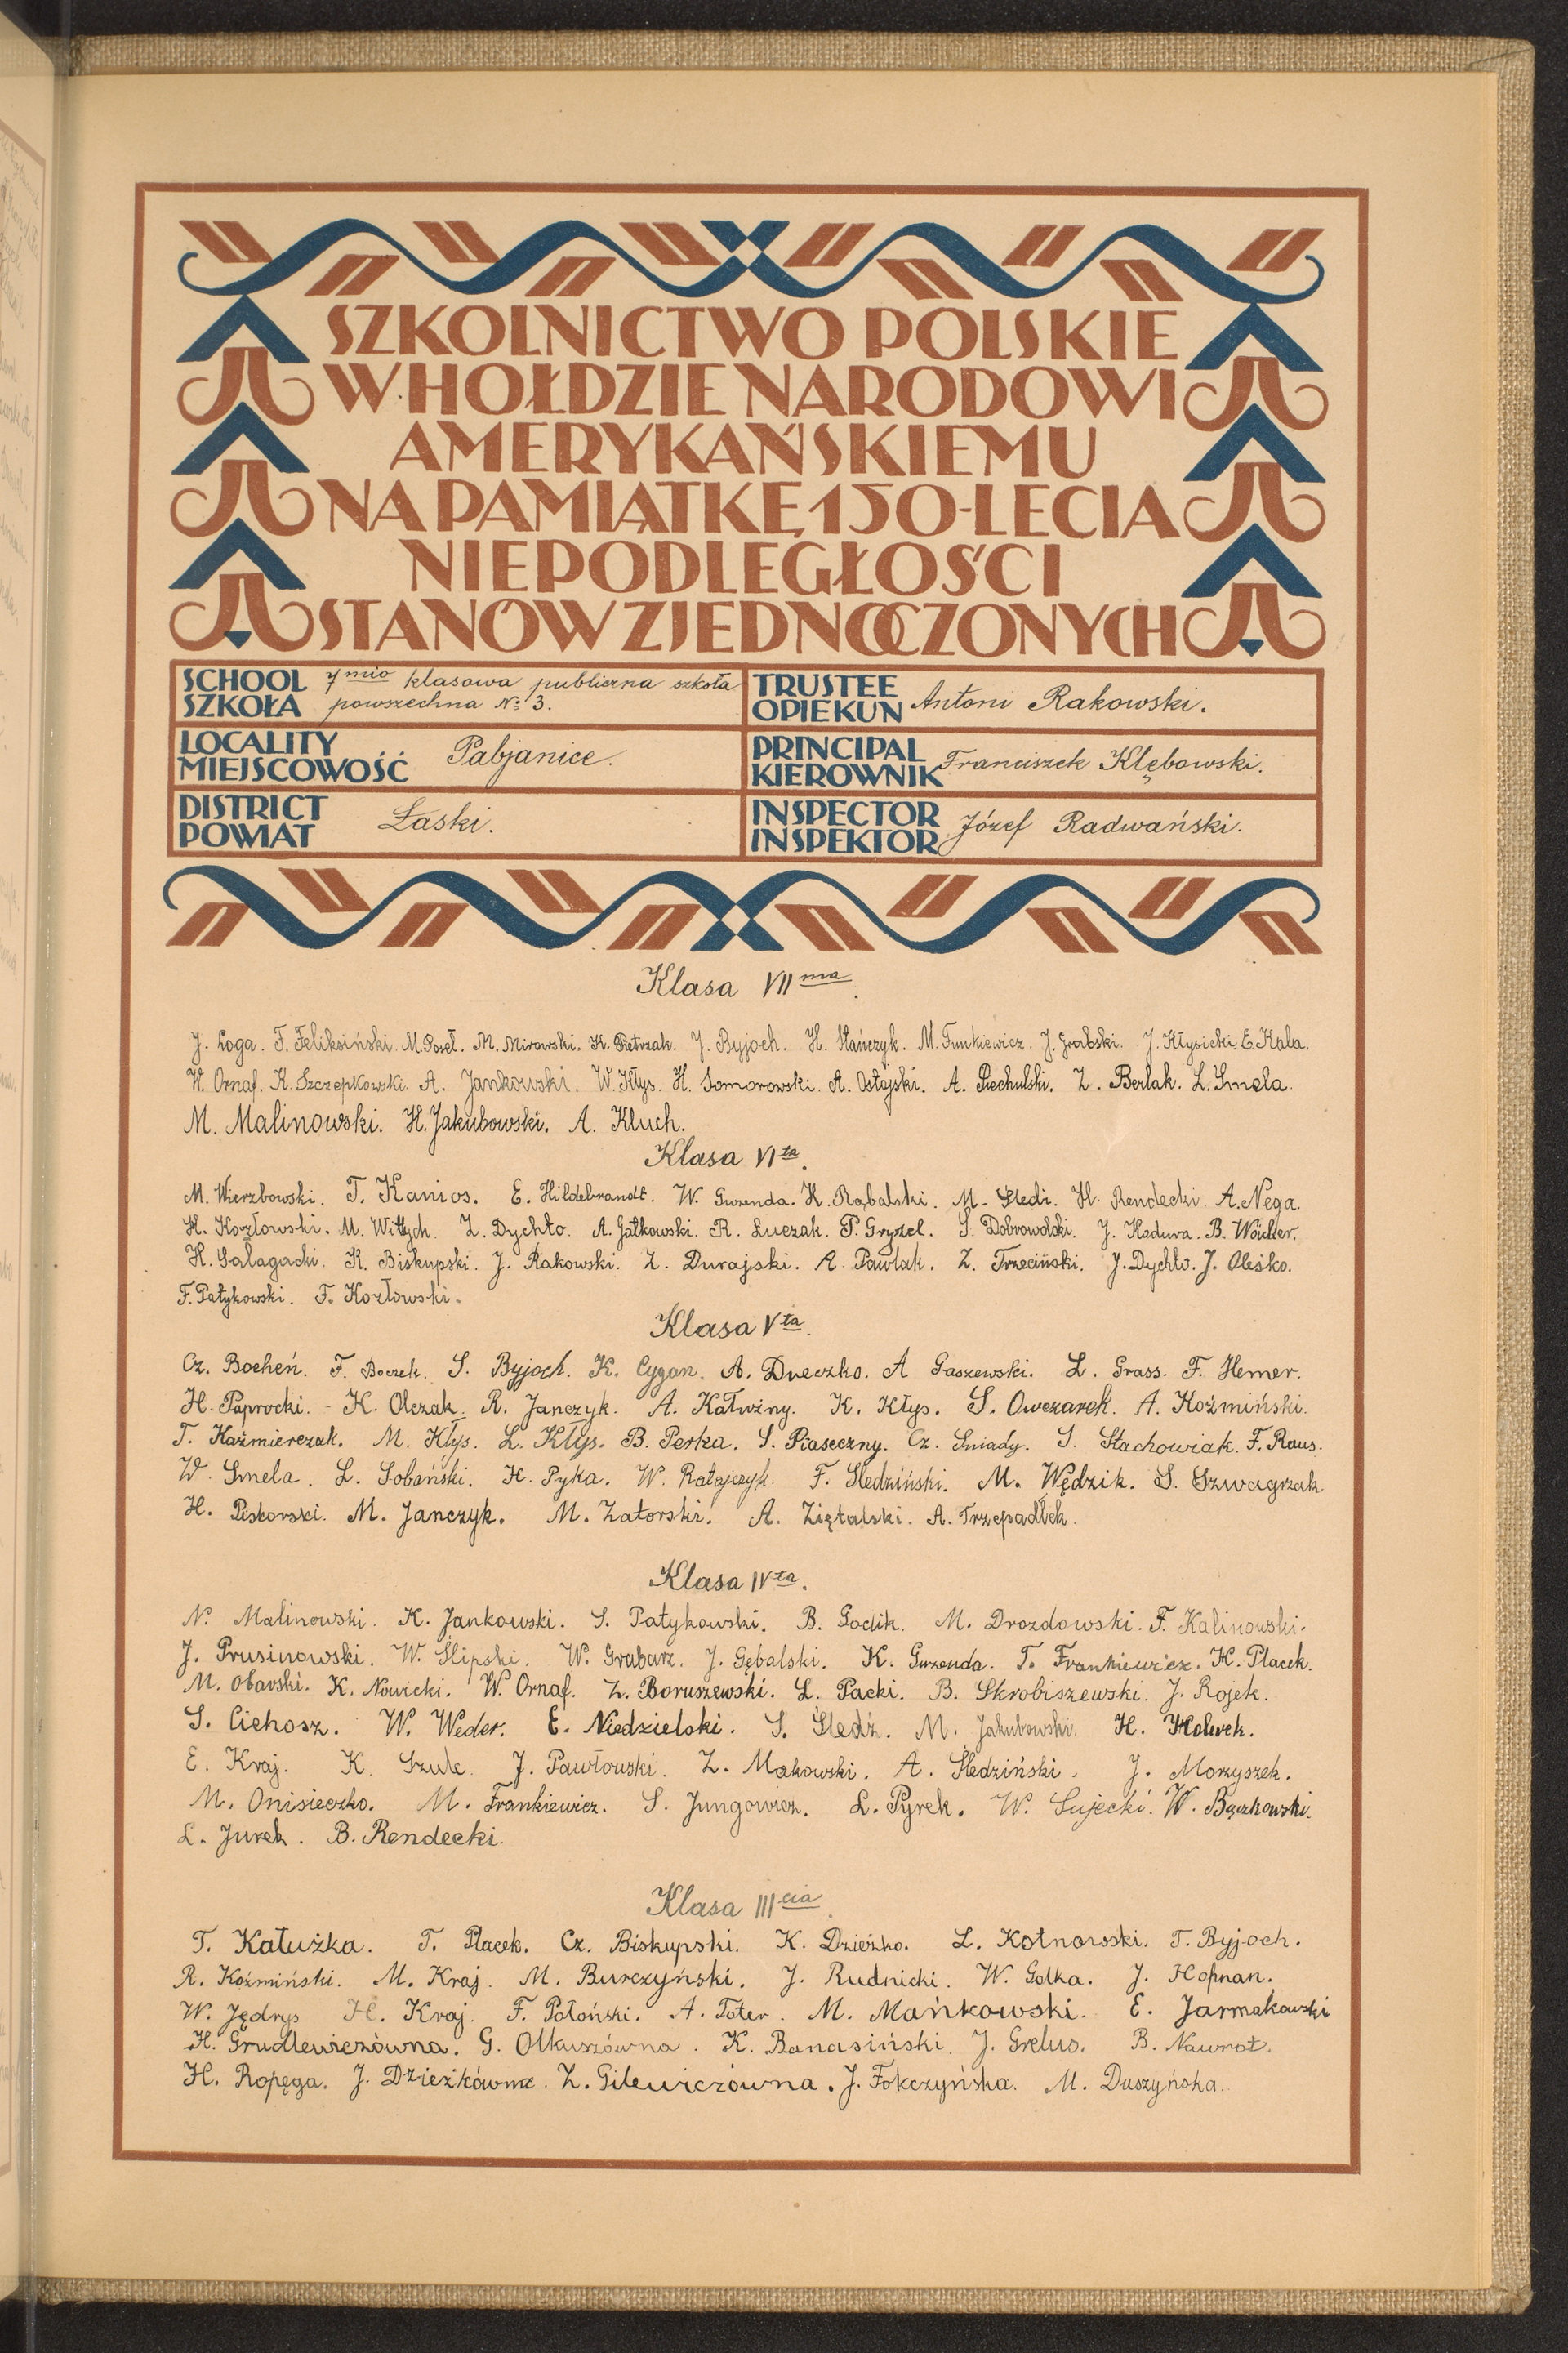 SZKOLNICTWO POLSKIE
W HOŁDZIE NARODOWI
AMERYKAŃSKIEMU
NA PAMIĄTKĘ 150-LECIA
NIEPODLEGŁOŚCI
STANÓW ZJEDNOCZONYCH
SCHOOL SZKOŁA 7mio klasowa publiczna szkoła
powszechna № 3.
TRUSTEE OPIEKUN Antoni Rakowski.
LOCALITY MIEJSCOWOŚĆ Pabjanice.
PRINCIPAL KIEROWNIK Franciszek Klębowski.
DISTRICT POWIAT Łaski.
INSPECTOR INSPEKTOR Józef Radwański.
Klasa VII ma.
J. Loga. F. Feliksiński. M. Poseł. M. Mirowski. K. Pietrzak. J. Byjoch. H. Stańczyk. M. Funkiewicz. J. Grabski. J. Kłysicki. E. Kala.
W. Ornaf. K. Szczepkowski. A. Jankowski. W. Kłys. H. Somorowski. A. Ostojski. A. Piechulski. Z. Berlak. L. Smela.
M. Malinowski. H. Jakubowski. A. Kluch.
Klasa VI ta.
M. Wierzbowski. T. Kanios. E. Hildebrandt. W. Gwzenda. K. Rąbalski. M. Śledź. H. Rendecki. A. Nega.
H. Kozłowski. M. Wittych. Z. Dychto. A. Gałkowski. R. Luczak. P. Gryzel. S. Dobrowolski. J. Kodura. B. Wöicker.
H. Gałagacki. K. Biskupski. J. Rakowski. Z. Durajski. A. Pawlak. Z. Trzeciński. J. Dychto. J. Oleśko.
F. Patykowski. F. Kozłowski.
Klasa V ta.
Cz. Bocheń. F. Boczek. S. Byjoch. K. Cygan. A. Dueczko. A Gaszewski. L. Grass. F. Hemer.
H. Paprocki. - K. Olczak. R. Janczyk. A. Kałużny. K. Kłys. S. Owczarek. A. Koźmiński.
T. Kaźmierczak. M. Kłys. L. Kłys. B. Perka. S. Piaseczny. Cz. Śniady. S. Stachowiak. F. Raus.
W. Smela. L. Sobański. H. Pyka. W. Ratajczyk. F. Śledziński. M. Wędzik. S. Szwagrzak.
H. Piskorski. M. Janczyk. M. Zatorski. A. Ziętalski. A. Trzepadłek.
Klasa IV ta.
N. Malinowski. K. Jankowski. S. Patykowski. B. Goclik. M. Drozdowski. F. Kalinowski.
J. Prusinowski. W. Ślipski. W. Grabarz. J. Gębalski. K. Gwzenda. T. Frankiewicz. K. Placek.
M. Obarski. K. Nowicki. W. Ornaf. Z. Boruszewski. L. Packi. B. Skrobiszewski. J. Rojek.
S. Cichosz. W. Weder. E. Niedzielski. S. Śledź. M. Jakubowski. H. Holwek.
E. Kraj. K. Szulc. J. Pawłowski. Z. Makowski. A. Śledziński. J. Morzyszek.
M. Onisieczko. M. Frankiewicz. S. Jungowicz. L. Pyrek. W. Sujecki. W. Bączkowski.
L. Jurek. B. Rendecki.
Klasa III cia.
T. Kałużka. T. Placek. Cz. Biskupski. K. Dzieżko. L. Kotnowski. T. Byjoch.
R. Koźmiński. M. Kraj. M. Burczyński. J. Rudnicki. W. Golka. J. Hofman.
W. Jędrys H. Kraj. F. Połoński. A. Toter. M. Mańkowski. E. Jarmakowski
H. Grudlewiczówna. G. Olkuszówna. K. Banasiński. J. Grelus. B. Nawrot.
H. Ropęga. J. Dzieżkówna. Z. Gilewiczówna. J. Fokczyńska. M. Duszyńska.